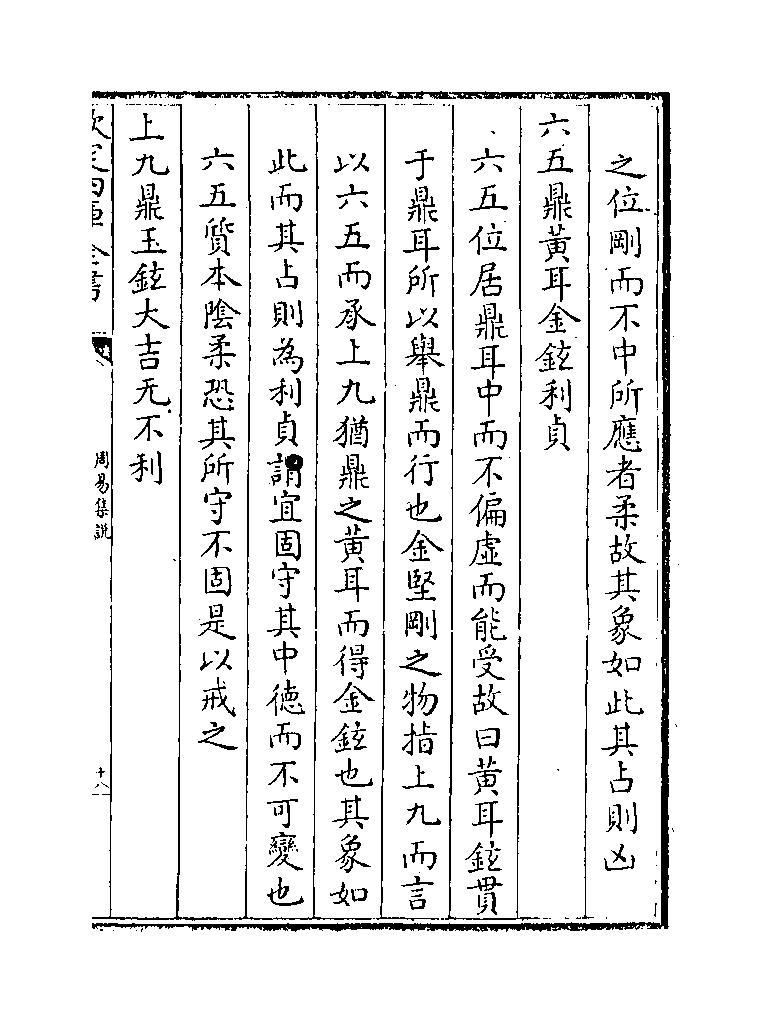 之位剛而不中所應者柔故其象如此其占則凶
六五鼎黃耳金鉉利貞
六五位居鼎耳中而不偏虛而能受故曰黃耳鉉貫
于鼎耳所以舉鼎而行也金堅剛之物指上九而言
以六五而承上九猶鼎之黃耳而得金鉉也其象如
此而其占則為利貞謂宜固守其中徳而不可變也
六五質本陰柔恐其所守不固是以戒之
上九鼎玉鉉大吉无不利
欽定四庫全書
周易集說
十八